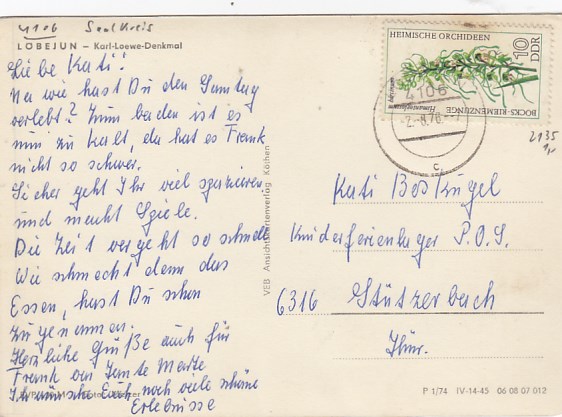 4106 Saalkreis
LÖBEJÜN — Karl-Loewe-Denkmal
Liebe Kati!
Na wie hast Du den Sonntag
verlebt? Zum baden ist es
nun zu kalt, da hat es Frank
nicht so schwer.
Sicher geht Ihr viel spazieren
und macht Spiele.
Die Zeit vergeht so schnell
Wie schmeckt denn das
Essen, hast Du schon
zugenommen.
Herzliche Grüße auch für
Frank von Tante
Ich wünsche Euch noch viele schöne
Erlebnisse
VEB Ansichtskartenverlag Köthen
HEIMISCHE ORCHIDEEN
10
DDR
BOCKS-RIEMENZUNGE
Himantoglossum hircinum
4106
-2.-8.76--7
c
2135
1,-
Kati Boskugel
Kinderferienlager P.O.S.
6316 Stützerbach
Thür.
P 1/74 IV-14-45 06 08 07 012